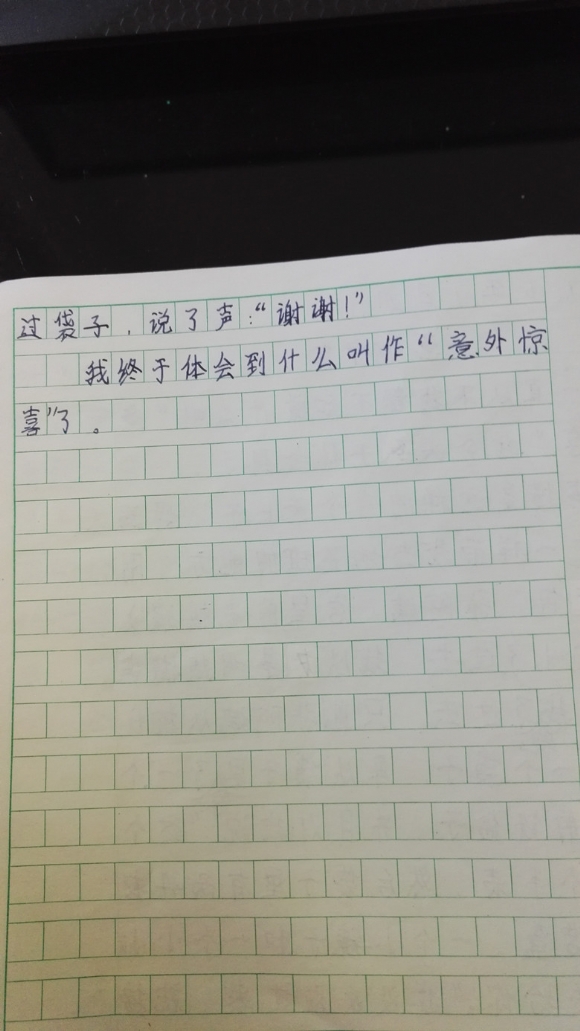 过袋子，说了声：“谢谢！”
我终于体会到什么叫作“意外惊
喜”了。